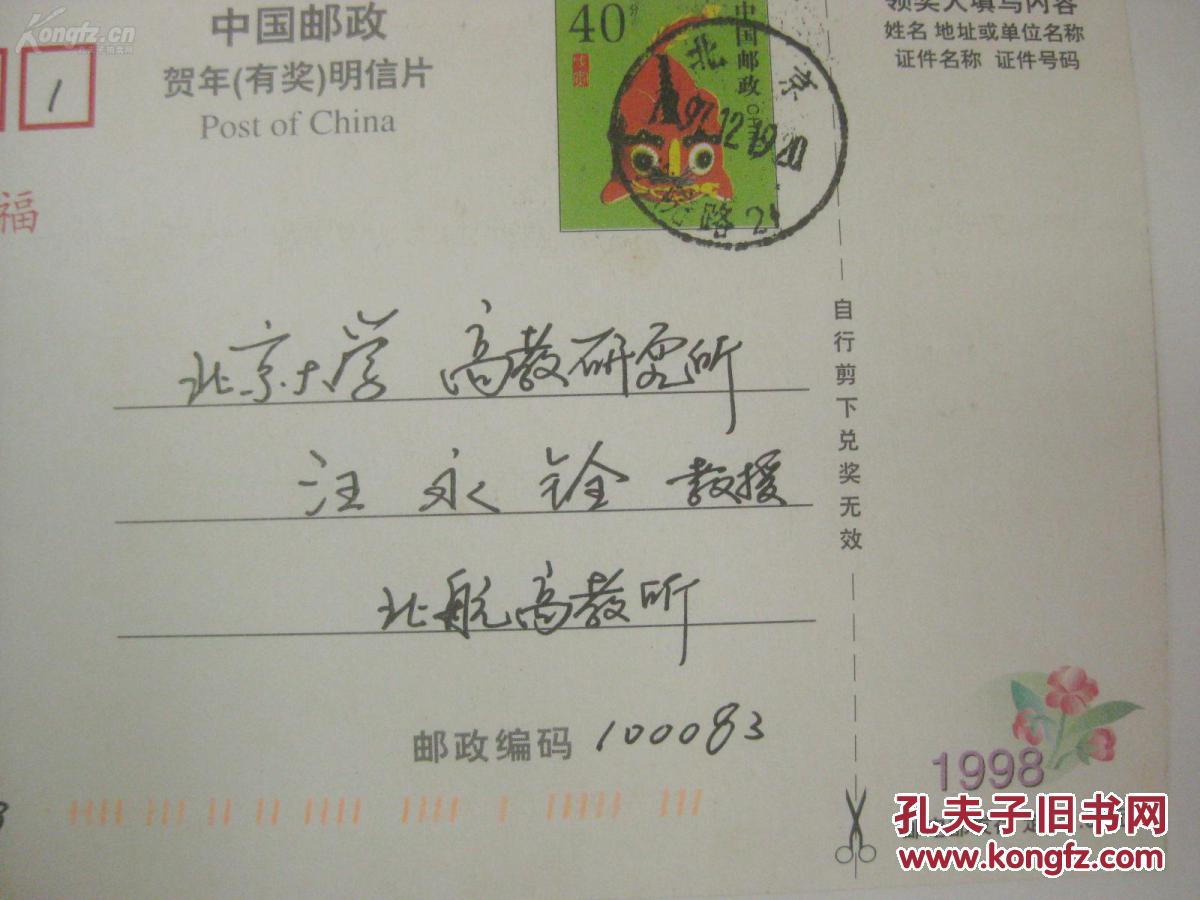 Kongfz.cn
孔夫子拍卖网
中国邮政
贺年(有奖)明信片
Post of China
1
福
40分
中国邮政
北京
97.12.19.20
路21
领奖人填写内容
姓名 地址或单位名称
证件名称 证件号码
北京大学 高教研究所
汪永铨 教授
北航高教所
邮政编码 100083
自行剪下兑奖无效
1998
孔夫子旧书网
www.kongfz.com